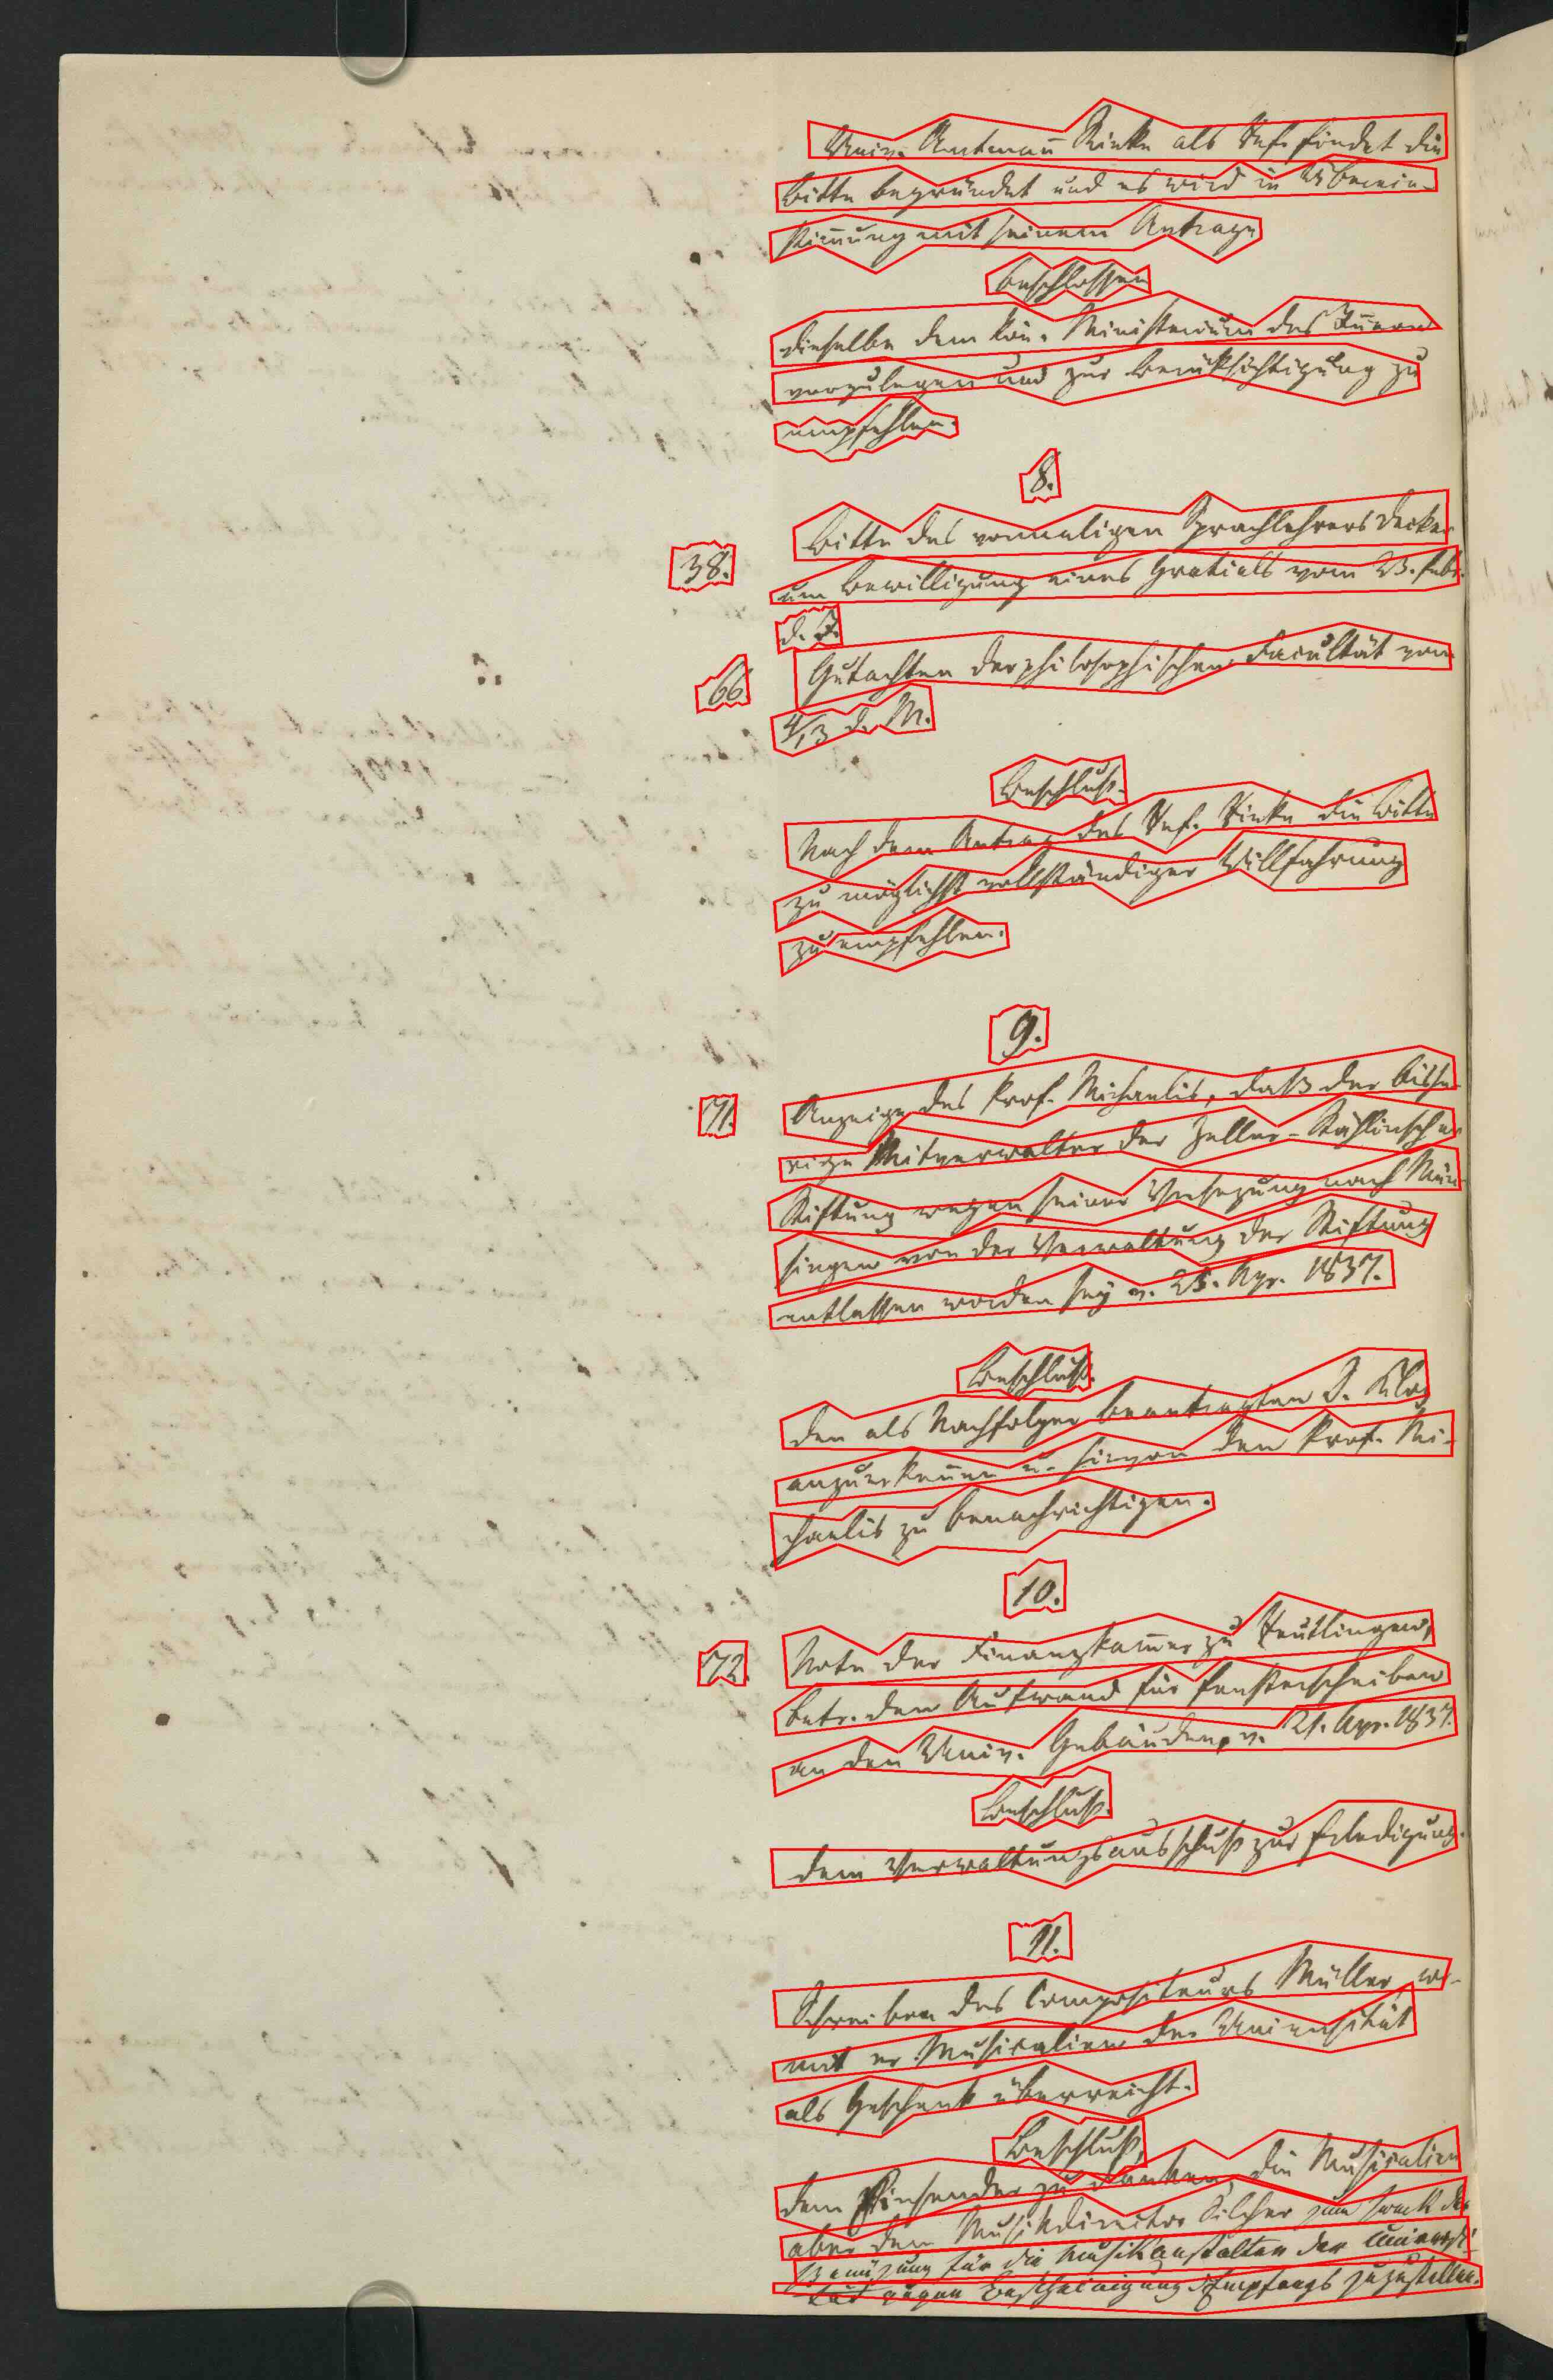 Univ. Amtmañ Rinke als Ref. findet die
Bitte begründet und es wird in Überein-
stim̄ung mit seinem Antrage
beschlossen
dieselbe dem kön. Ministerium des Iñern
vorzulegen und zur Berüksichtigung zu
empfehlen.
8.
Bitte des vormaligen Sprachlehrers Decker
38.
um Bewilligung eines Gratials vom 23. Febr.
d. J.
Gutachten der philosophischen Facultät vom
66
4/13 d. M.
Beschluß.
Nach dem Antrag des Ref. Rinke die Bitte
zu möglichst vollständiger Willfahrung
zu empfehlen.
9.
Anzeige des Prof. Michaelis, daß der bishe-
71.
rige Mitverwalter der Zeller-Stählinschen
Stiftung wegen seiner Versezung nach Mün-
singen von der Verwaltung der Stiftung
entlassen worden sey v. 25. Apr. 1837.
Beschluß.
den als Nachfolger beantragten
anzuerkeñen u. hievon den Prof. Mi-
chaelis zu benachrichtigen.
10.
Note der Finanzkam̄er zu Reutlingen,
72.
betr. den Aufwand für Fensterscheiben
an den Univ. Gebäuden, v. 21. Apr. 1837.
Beschluß.
dem Verwaltungsausschuß zur Erledigung.
11.
Schreiben des Compositeurs Müller, wo-
mit er Musicalien der Universität
als Geschenk überreicht.
Beschluß,
dem Einsender zu danken, die Musicalien
aber dem Musikdirector Silcher zum Zweck der
Benüzung für die Musikanstalten der Universi-
tät gegen Bescheinigung d. Empfangs zuzustellen.